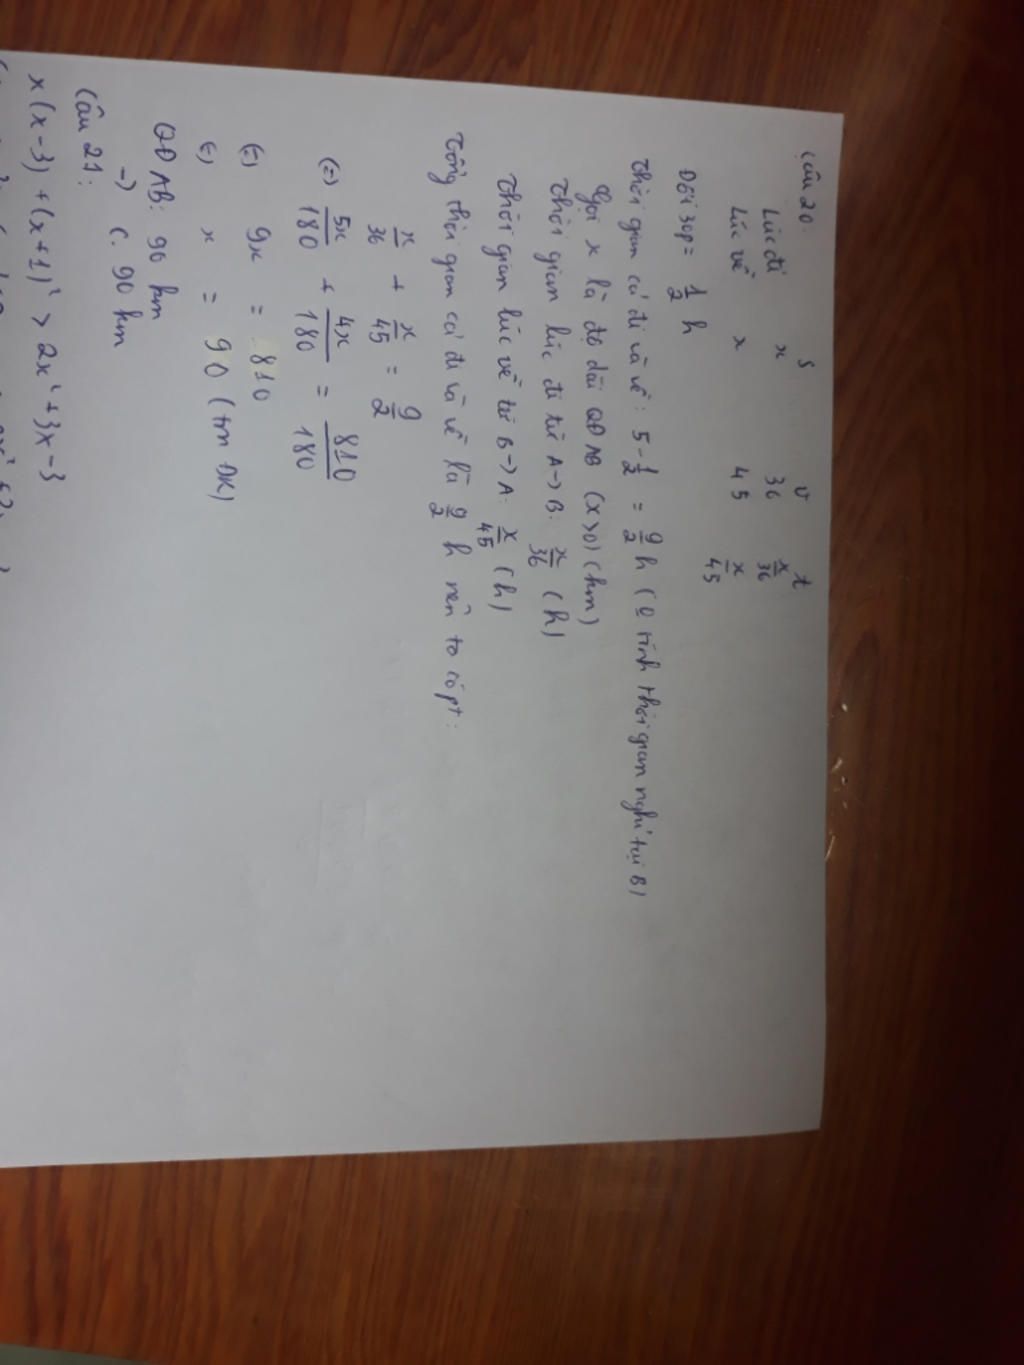 Câu 20:
S v t
Lúc đi x 36 x/36
Lúc về x 45 x/45
Đổi 30p = 1/2 h
Thời gian cả đi và về: 5 - 1/2 = 9/2 h (0 tính thời gian nghỉ tại B)
Gọi x là độ dài QĐ AB (x>0) (km)
Thời gian lúc đi từ A -> B: x/36 (h)
Thời gian lúc về từ B -> A: x/45 (h)
Tổng thời gian cả đi và về là 9/2 h nên ta có pt:
x/36 + x/45 = 9/2
(=) 5x/180 + 4x/180 = 810/180
(=) 9x = 810
(=) x = 90 (tm ĐK)
QĐ AB: 90 km
-> C. 90 km
Câu 21:
x(x-3) + (x+1)² > 2x² + 3x - 3